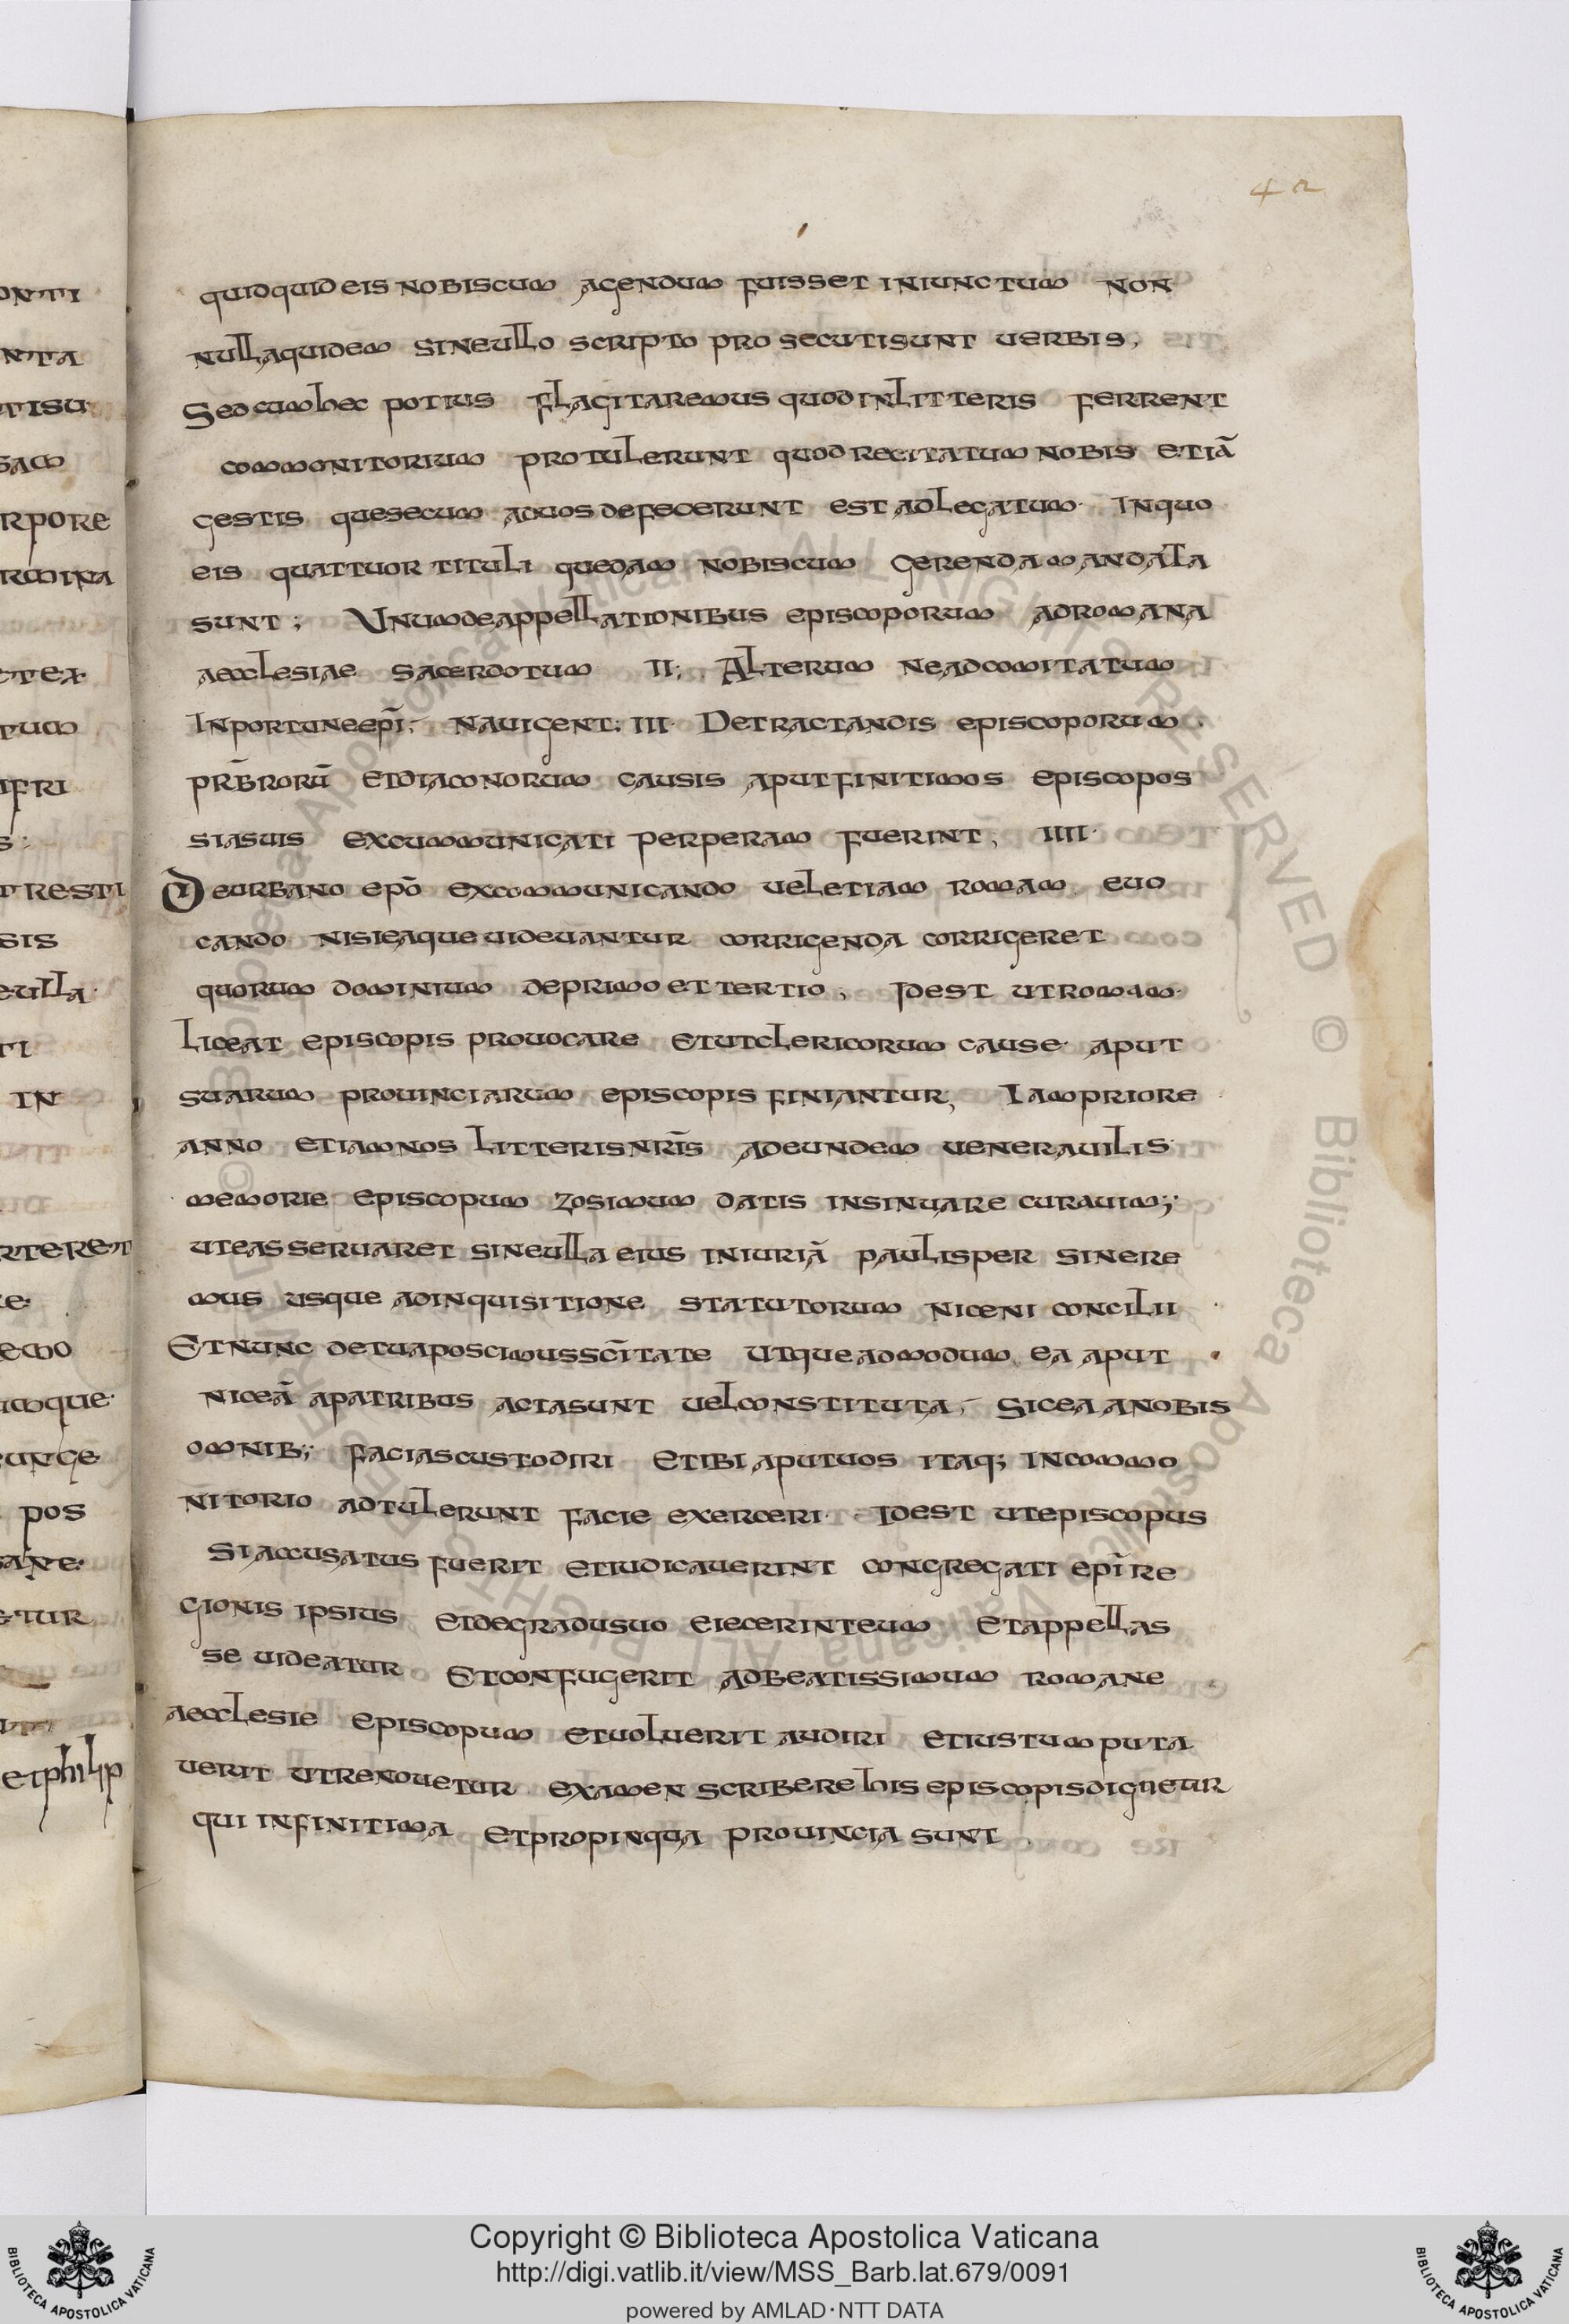 42
quidquid eis nobiscum agendum fuisset iniunctum non
nulla quidem sine ullo scripto prosecuti sunt uerbis;
Sed cum hec potius flagitaremus quod in litteris ferrent
commonitorium protulerunt quod recitatum nobis etiā
gestis que secum aduos defecerunt est adlegatum· In quo
eis quattuor tituli quedam nobiscum gerenda mandata
sunt; Unum de appellationibus episcoporum ad romana
aecclesiae sacerdotum II; Alterum ne ad comitatum
Inportune ep̄i; nauigent; III· De tractandis episcoporum
pr̄brorū et diaconorum causis aput finitimos episcopos
si a suis excummunicati perperam fuerint; IIII·
De urbano ep̄o excommunicando uel etiam romam euo
cando nisi ea que uidevantur corrigenda corrigeret
quorum dominium de primo et tertio; Idest ut romam·
Liceat episcopis prouocare et ut clericorum cause· aput
suarum prouinciarum episcopis finiantur; Iam priore
anno etiam nos litteris nr̄is ad eundem uenerauilis·
memorie episcopum zosimum datis insinuare curauim;·
ut eas seruaret sine ulla eius iniuriā paulisper sinere
mus usque ad inquisitione statutorum niceni concilii
Et nunc de tua poscimus sc̄itate utque admodum ea aput
niceā a patribus acta sunt uel constituta; Sic ea a nobis
omnib;· facias custodiri et ibi aput uos itaq; in commo
nitorio adtulerunt facie exerceri· Idest ut episcopus
si accusatus fuerit et iudicauerint congregati ep̄i re
gionis ipsius et de gradu suo eiecerint eum et appellas
se uideatur et confugerit ad beatissimum romane
aecclesie episcopum et uoluerit audiri et iustum puta
uerit ut renouetur examen scribere his episcopis dignetur
qui in finitima et propinqua prouincia sunt
onti
nta
tisu
sam
rpore
rmina
etex
tum
ifri
s:
t resti
sis
eulla·
ti
in
rteret
re·
emo
mque·
unge
pos
sane·
etur
et philip
© Biblioteca Apostolica Vaticana ALL RIGHTS RESERVED © Biblioteca Apostolica Vaticana ALL RIGHTS RESERVED
Copyright © Biblioteca Apostolica Vaticana
http://digi.vatlib.it/view/MSS_Barb.lat.679/0091
powered by AMLAD·NTT DATA
BIBLIOTECA APOSTOLICA VATICANA
BIBLIOTECA APOSTOLICA VATICANA